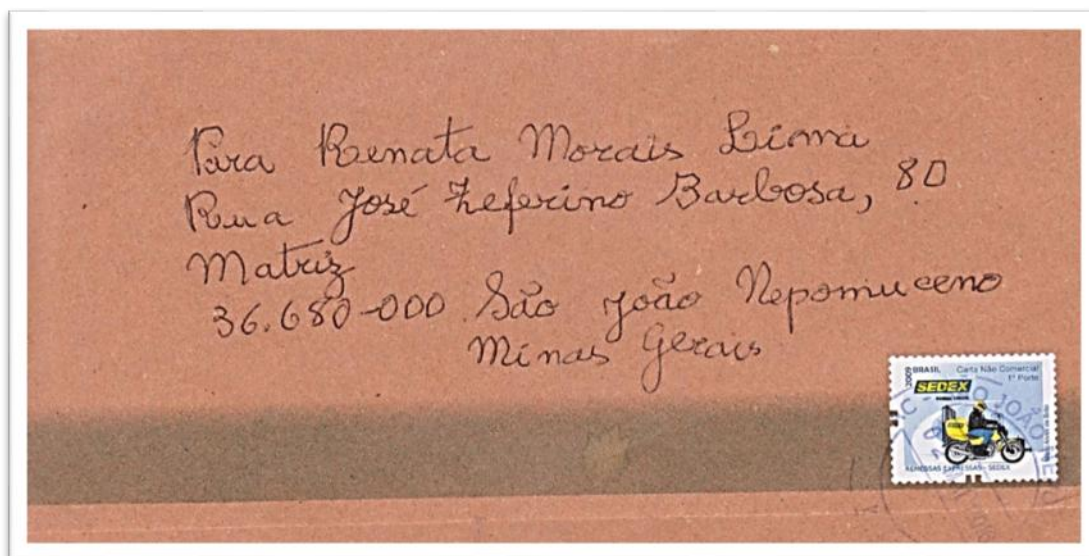 Para Renata Morais Lima
Rua José Zeferino Barbosa, 80
Matriz
36.680-000 São João Nepomuceno
Minas Gerais
2009 BRASIL Carta Não Comercial
1º Porte
SEDEX
REMESSAS EXPRESSAS - SEDEX
JOÃO NEP